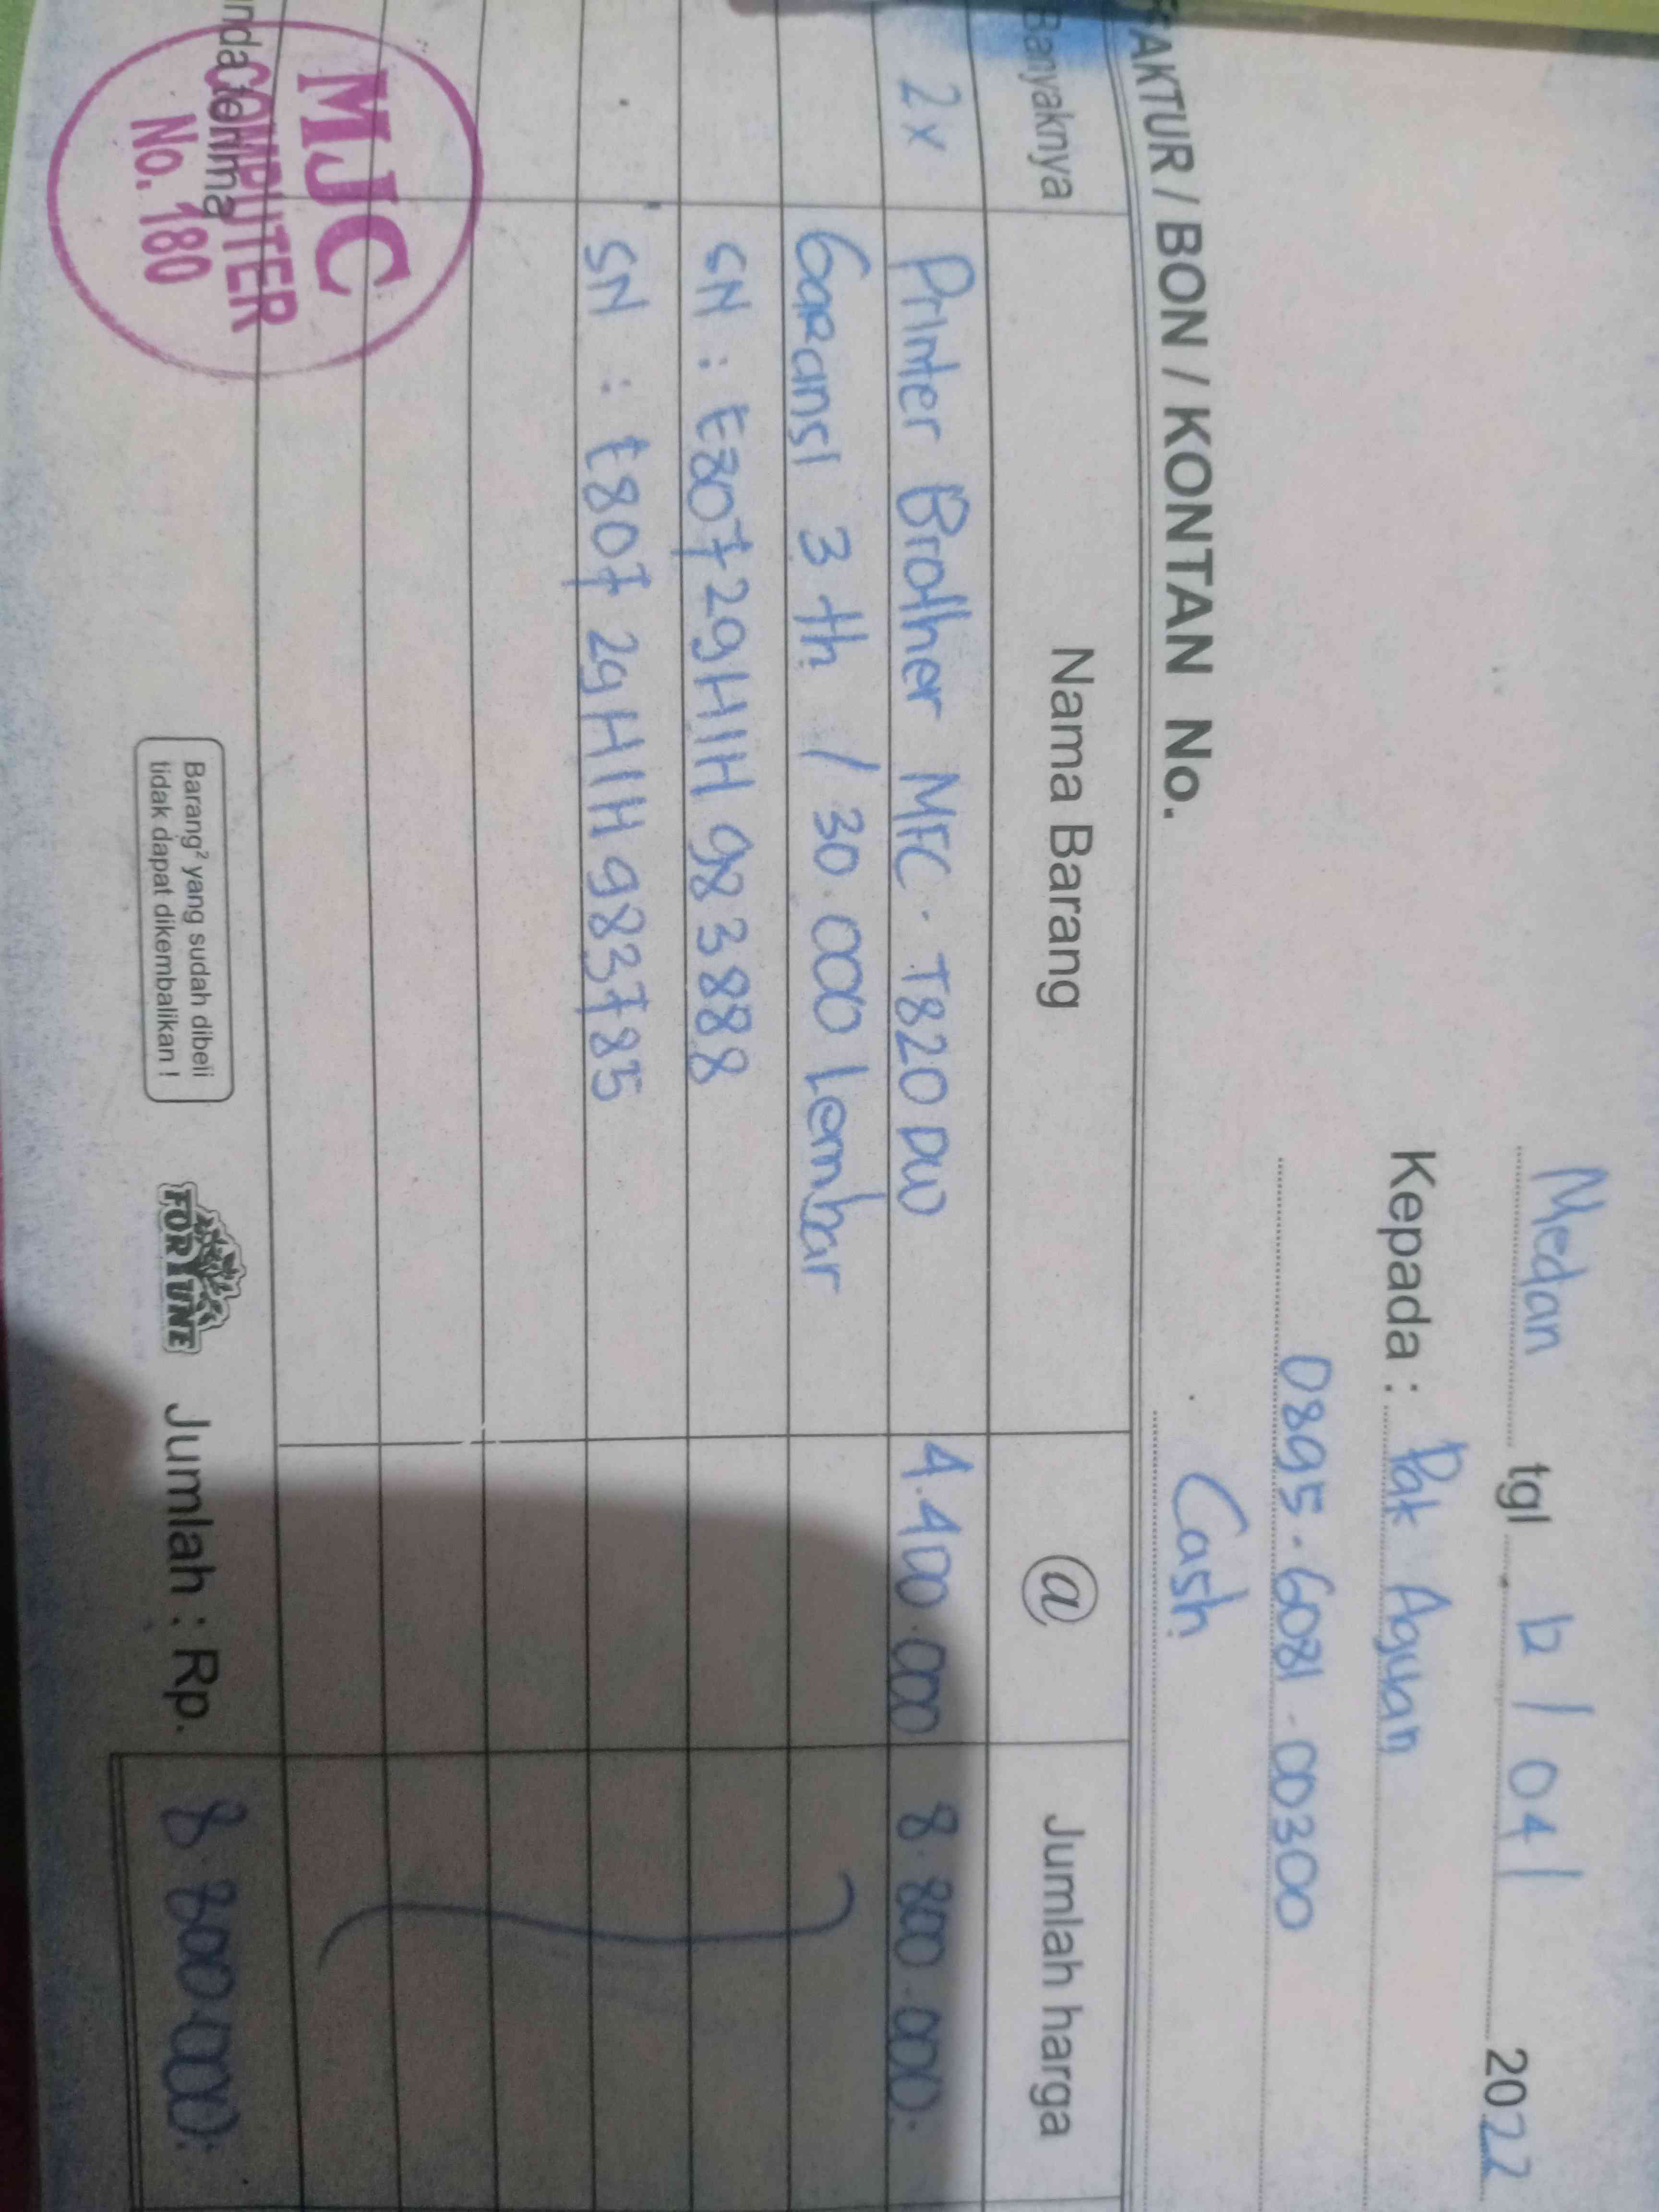 Medan tgl 12 / 04 / 2022
Kepada : Pak Aguan
0895-6081-00300
Cash
FAKTUR / BON / KONTAN No.
Banyaknya Nama Barang @ Jumlah harga
2x Printer Brother MFC-T820DW 4.400.000 8.800.000.
Garansi 3 th / 30.000 Lembar
SN : E80729H1H983888
SN : E80729H1H983785
MJC
COMPUTER
No. 180
nda terima
Barang² yang sudah dibeli
tidak dapat dikembalikan !
FORTUNE
Jumlah : Rp. 8.800.000.